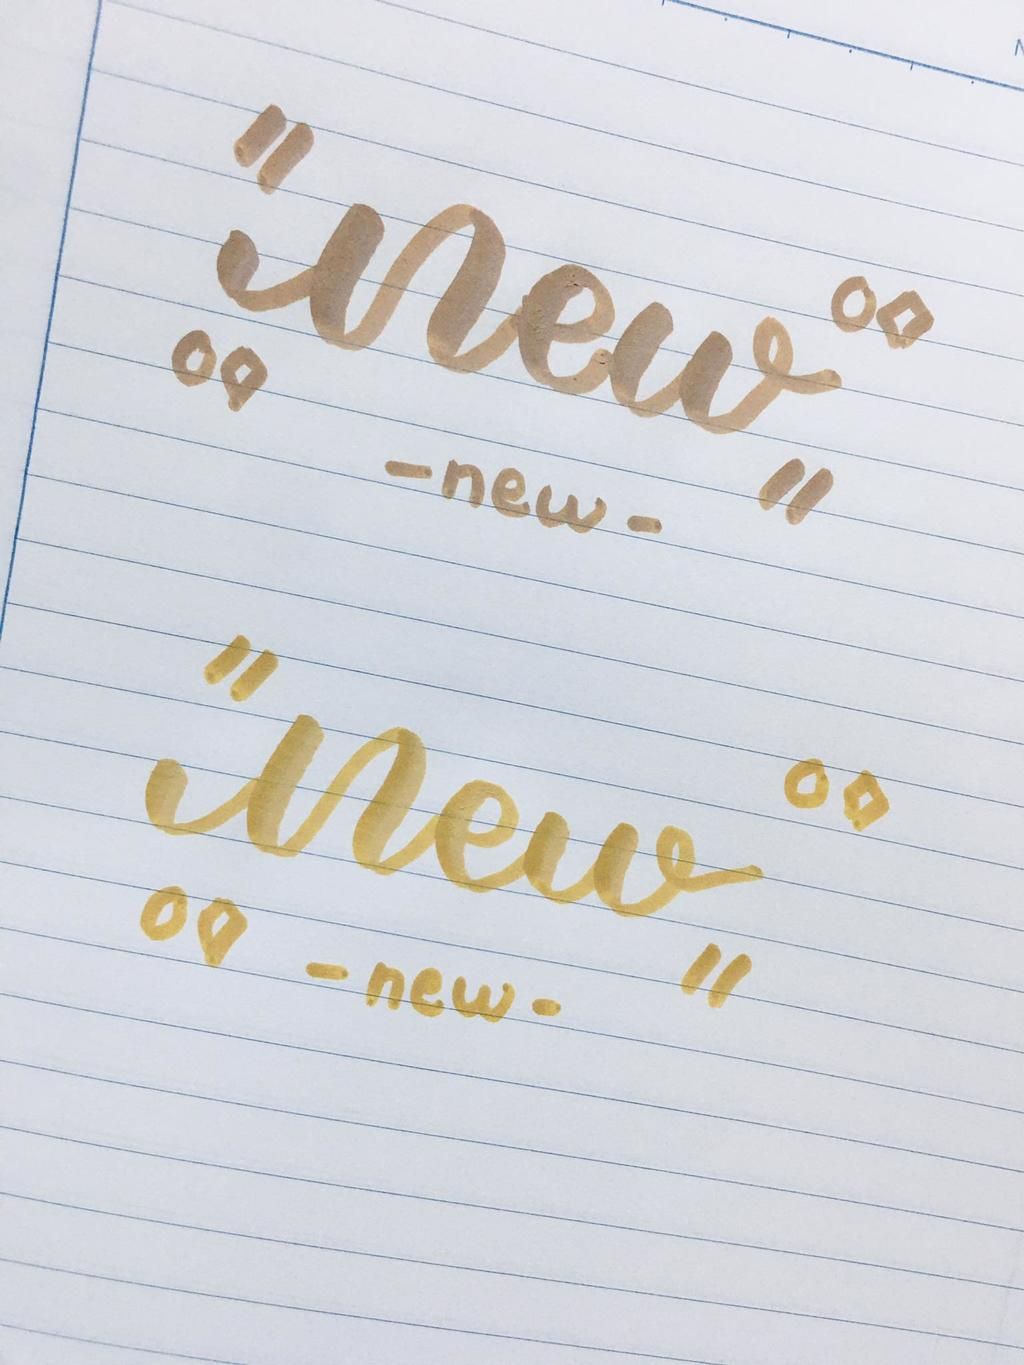 "new"
-new-
"new"
-new-